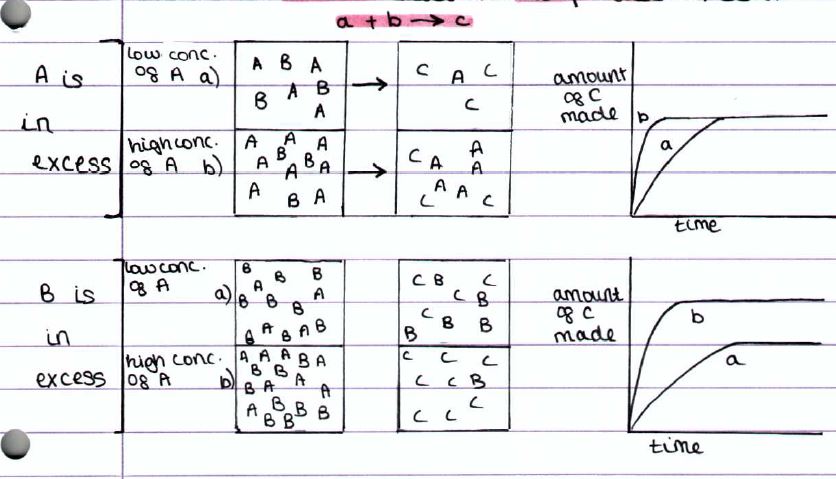 a + b → c
A is
in
excess
low conc.
of A a)
A B A
B A B
A
C A C
C
high conc.
of A b)
A A A
A B B A
A
A B A
C A A
A
A A
C C
amount
of C
made
b
a
time
B is
in
excess
low conc.
of A a)
B B B
A A
B B B
B A B A B
C B C
C B
C B B
B
high conc.
of A b)
A A A B A
B B A
B A A
A B B B
B B
C C C
C C B
C
C C
amount
of C
made
b
a
time